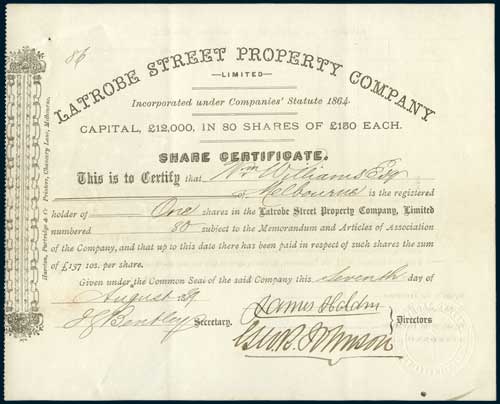 86
LATROBE STREET PROPERTY COMPANY
—LIMITED—
Incorporated under Companies' Statute 1864.
CAPITAL, £12,000, IN 80 SHARES OF £150 EACH.
SHARE CERTIFICATE.
This is to Certify that Wm Williams Esq
of Melbourne is the registered
holder of One shares in the Latrobe Street Property Company, Limited
numbered 80 subject to the Memorandum and Articles of Association
of the Company, and that up to this date there has been paid in respect of such shares the sum
of £137 10s. per share.
Given under the Common Seal of the said Company this Seventh day of
August 89
Bentley Secretary.
James
Geo. B. Johnson
Directors
Printers, Chancery Lane, Melbourne.